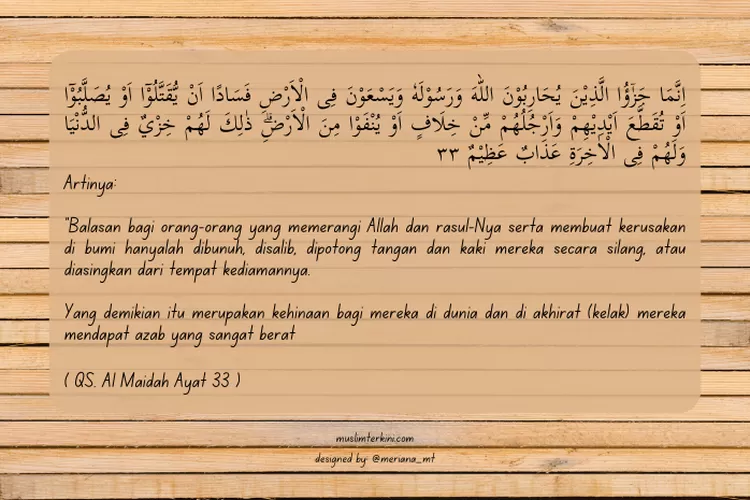 اِنَّمَا جَزٰۤؤُا الَّذِيْنَ يُحَارِبُوْنَ اللّٰهَ وَرَسُوْلَهٗ وَيَسْعَوْنَ فِى الْاَرْضِ فَسَادًا اَنْ يُّقَتَّلُوْٓا اَوْ يُصَلَّبُوْٓا
اَوْ تُقَطَّعَ اَيْدِيْهِمْ وَاَرْجُلُهُمْ مِّنْ خِلَافٍ اَوْ يُنْفَوْا مِنَ الْاَرْضِۗ ذٰلِكَ لَهُمْ خِزْيٌ فِى الدُّنْيَا
وَلَهُمْ فِى الْاٰخِرَةِ عَذَابٌ عَظِيْمٌ ٣٣
Artinya:
"Balasan bagi orang-orang yang memerangi Allah dan rasul-Nya serta membuat kerusakan
di bumi hanyalah dibunuh, disalib, dipotong tangan dan kaki mereka secara silang, atau
diasingkan dari tempat kediamannya.
Yang demikian itu merupakan kehinaan bagi mereka di dunia dan di akhirat (kelak) mereka
mendapat azab yang sangat berat
( QS. Al Maidah Ayat 33 )
muslimterkini.com
designed by: @meriana_mt